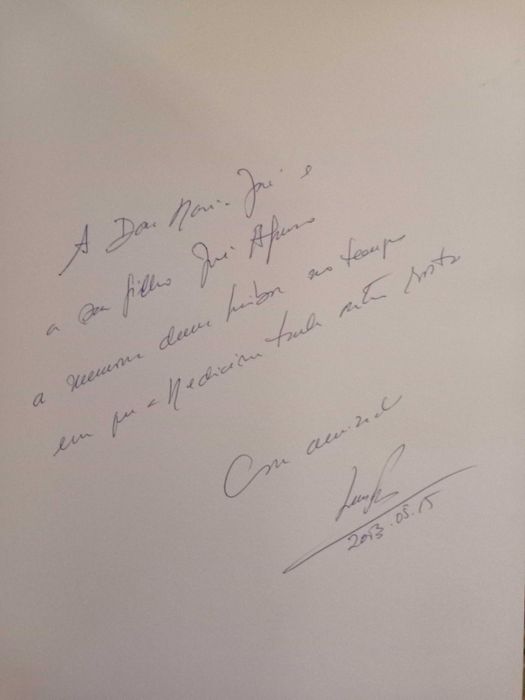 A Dona Maria José e
a seu filho José Afonso
a memória duma no tempo
em que a Medicina tinha outro rosto
Com amizade
2013.05.15